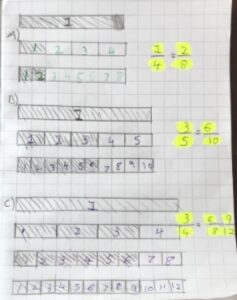 1
A)
1 2 3 4
1/4 = 2/8
1 2 3 4 5 6 7 8
B)
1
1 2 3 4 5
3/5 = 6/10
1 2 3 4 5 6 7 8 9 10
C)
1
1 2 3 4
3/4 = 6/8 9/12
1 2 3 4 5 6 7 8
1 2 3 4 5 6 7 8 9 10 11 12